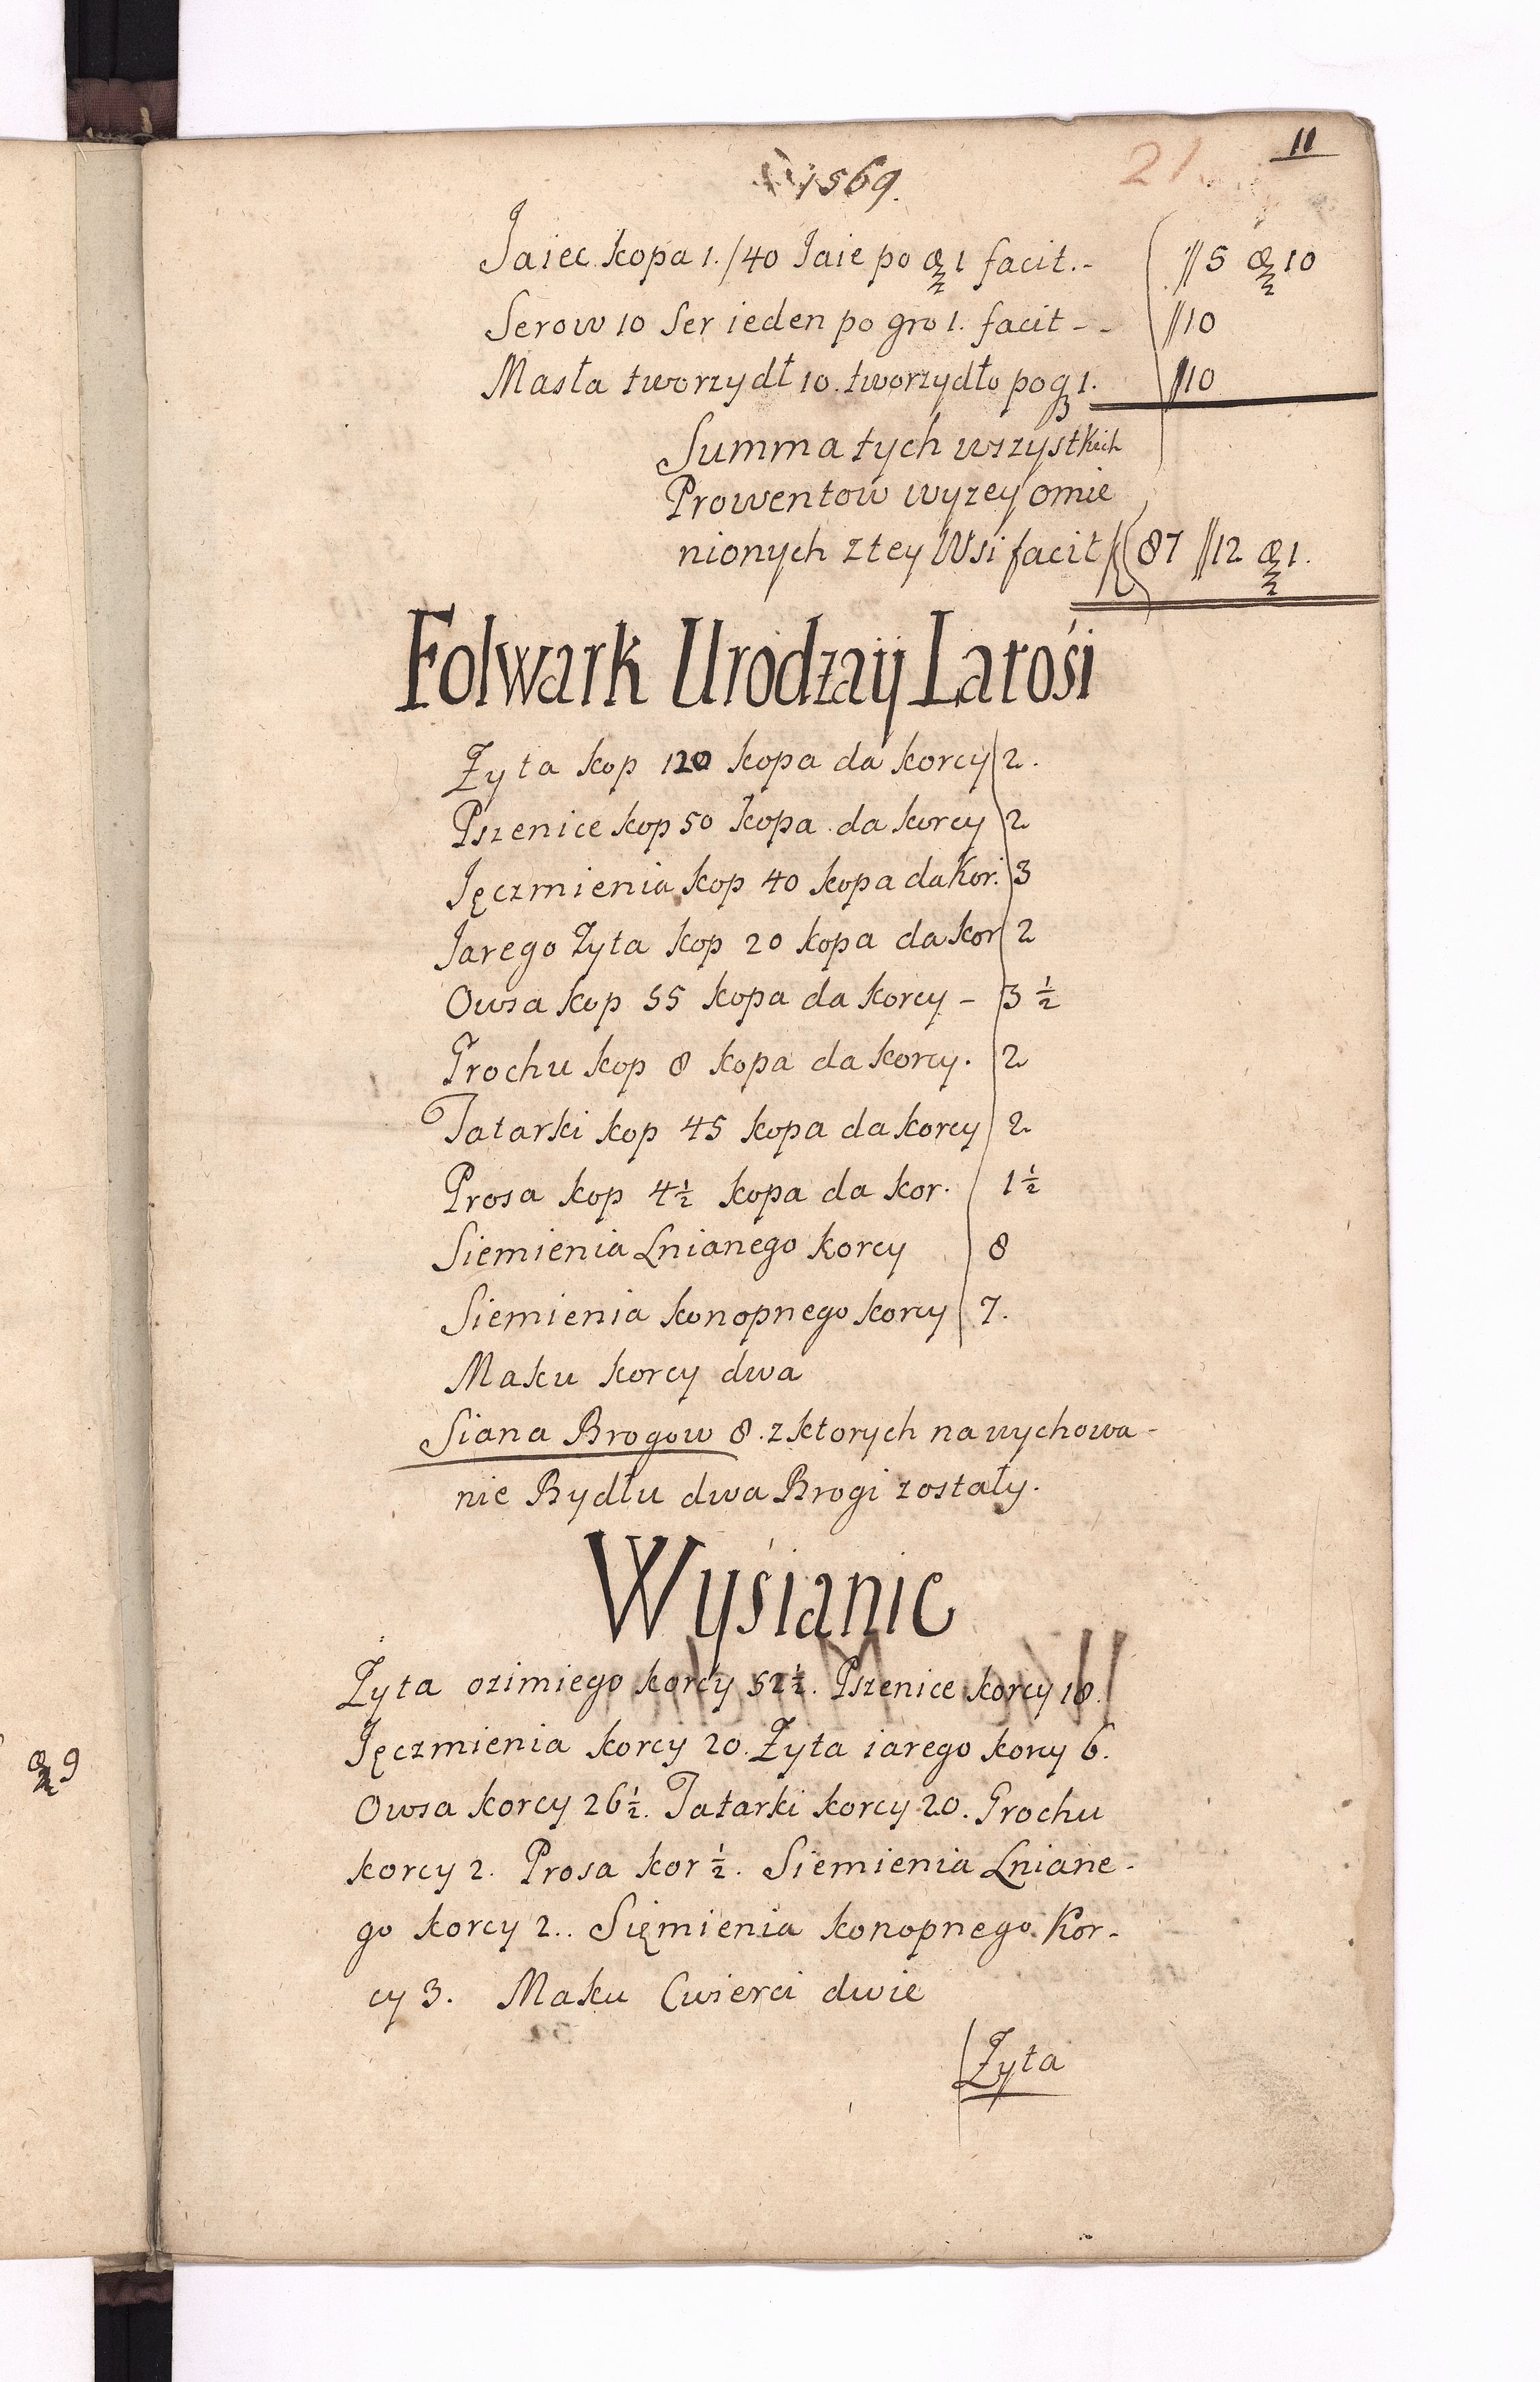 11
21
1569.
Jaiec kopa 1./40 Jaie po 1 facit.- // 5 10
Serow 10 Ser ieden po gro 1. facit - - //10
Masła tworzydł 10. tworzydło po g 1. //10
Summa tych wszystkich
Prowentow wyzey omie
nionych z tey Wsi facit 87 //12 1.
Folwark Urodzaij Latośi
Zyta kop 120 kopa da korcy 2.
Pszenice kop 50 kopa da korcy 2
Jęczmienia kop 40 kopa da Kor. 3
Jarego Zyta kop 20 kopa da kor 2
Owsa kop 55 kopa da korcy - 3 ½
Grochu kop 8 kopa da korcy. 2
Tatarki kop 45 kopa da korcy 2
Prosa kop 4½ kopa da kor. 1½
Siemienia Lnianego korcy 8
Siemienia konopnego korcy 7.
Maku korcy dwa
Siana Brogow 8. z ktorych na wychowa-
nie Bydłu dwa Brogi zostały.
Wyśianie
Zyta ozimiego korcy 52½. Pszenice korcy 18.
Jęczmienia korcy 20. Zyta iarego korcy 6.
Owsa korcy 26½. Tatarki korcy 20. Grochu
korcy 2. Prosa kor ½. Siemienia Lniane-
go korcy 2.. Sięmienia konopnego Kor-
cy 3. Maku Cwierci dwie
Zyta
9